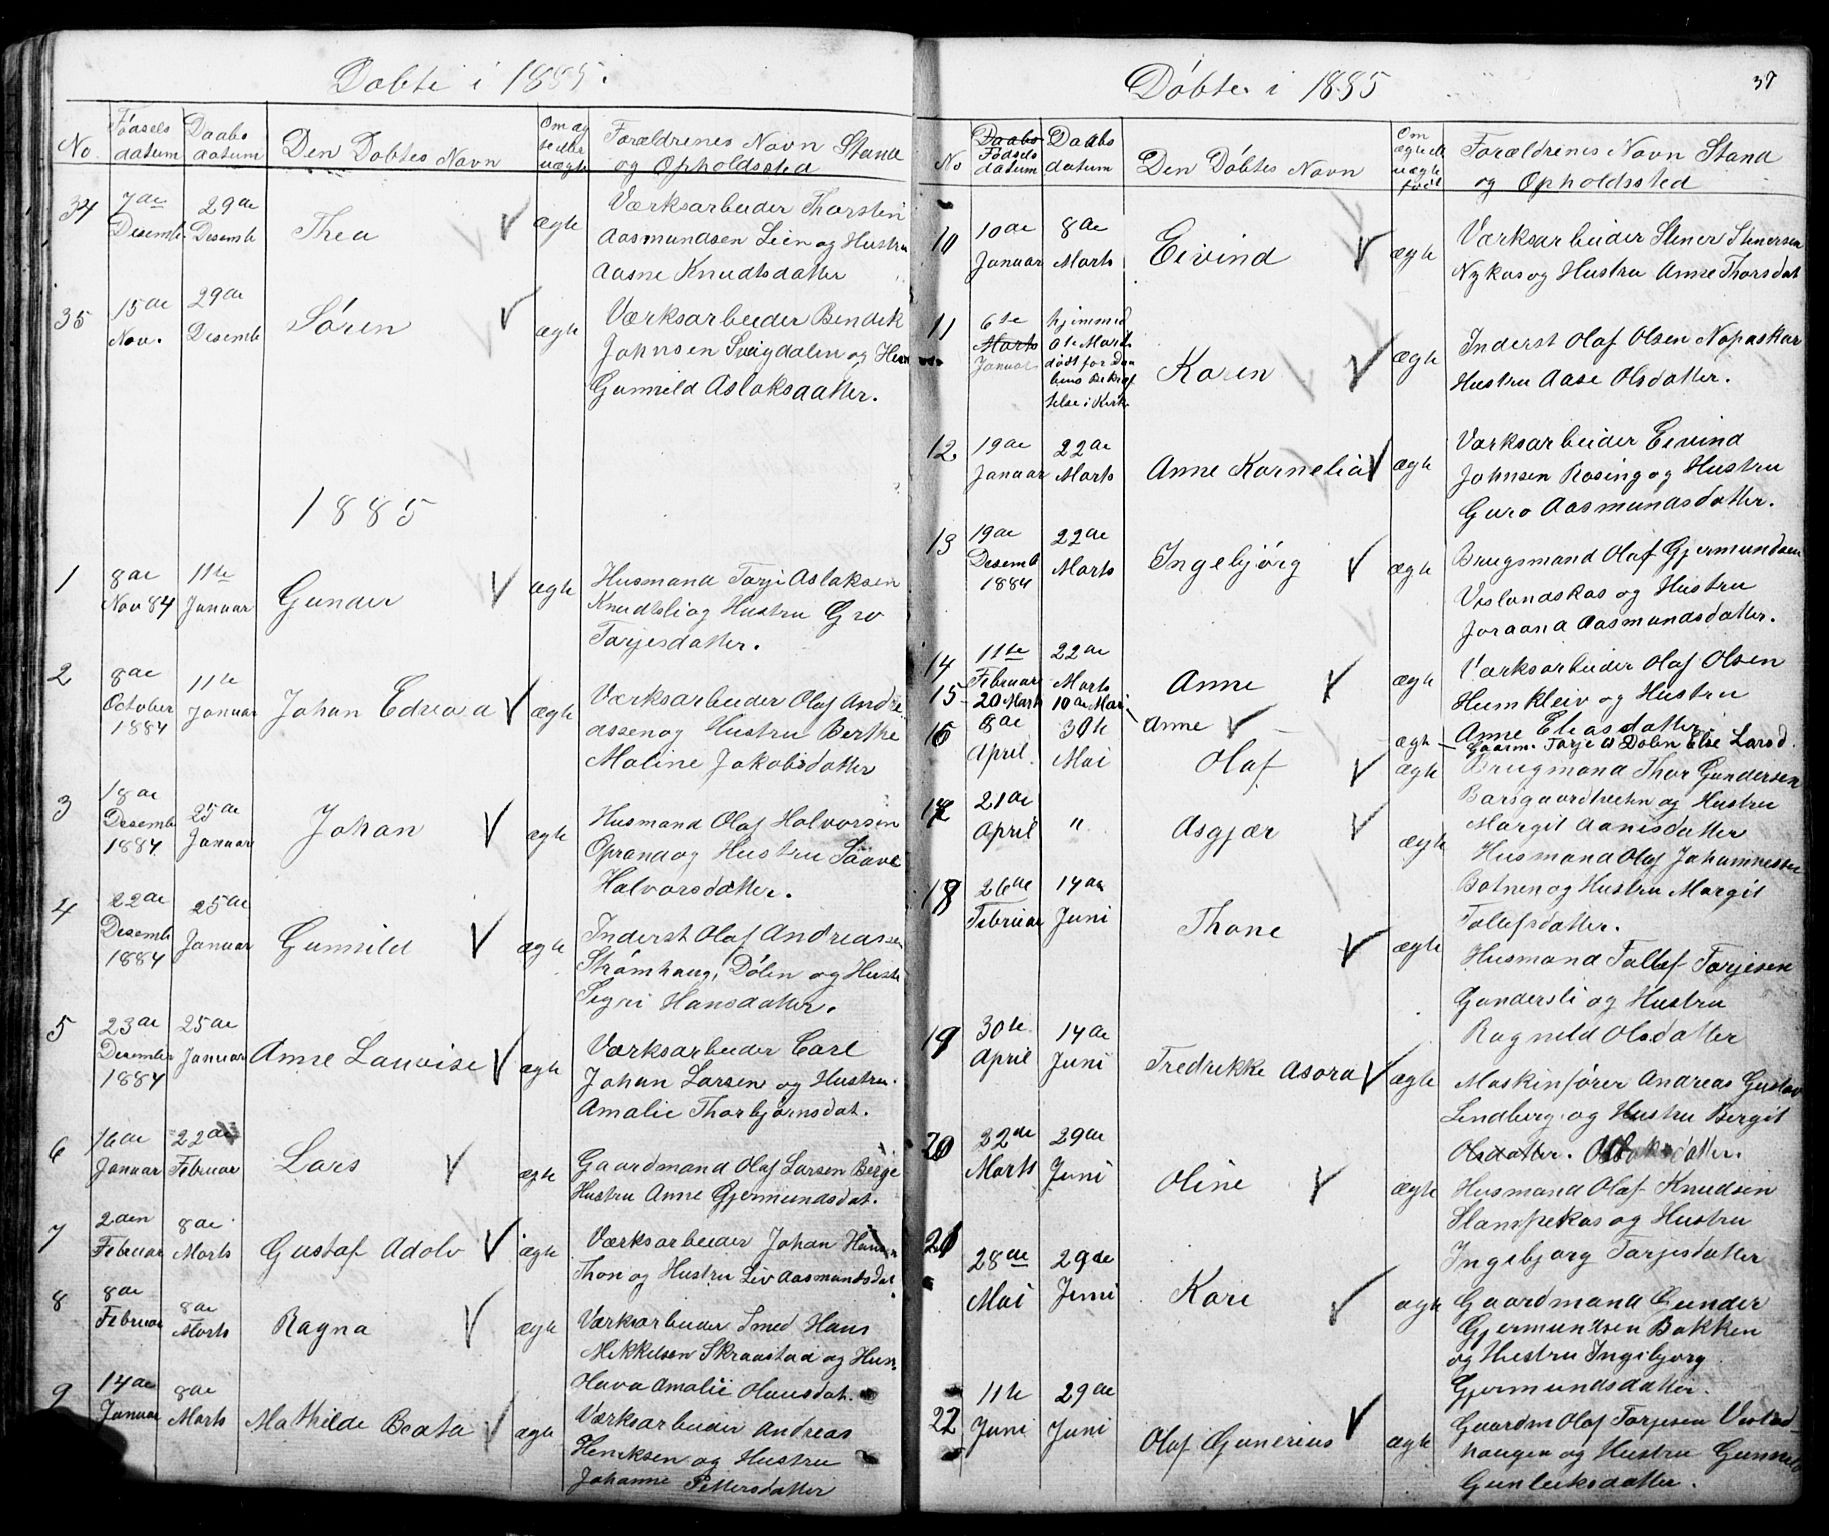 Døbte i 1885.
No.
Fødsels datum
Daabs datum
Den Døbtes Navn
Om æg te eller uægte
Forældrenes Navn Stand og Opholdssted
34
7de Desemb.
29de Desemb
Thea
ægte
Værksarbeider Thorstein
Aasmundsen Lien og Hustru
Aasne Knudtsdatter
35
15de Nov.
29de Desemb
Søren
ægte
Værksarbeider Bendik
Johnsen Sveigdalen og Hus
Gunnild Aslaksdatter.
1885
1
8de Nov 84
11te Januar
Gunder
ægte
Husmand Torje Aslaksen
Knudtsli og Hustru Gro
Torjesdatter.
2
8de October 1884
11te Januar
Johan Edvard
ægte
Værksarbeider Olaf Andre
assen og Hustru Berthe
Maline Jakobsdatter
3
18de Desemb 1884
25de Januar
Johan
ægte
Husmand Olaf Halvorsen
Oprand og Hustru
Halvorsdatter.
4
22de Desemb 1884
25de Januar
Gunnild
ægte
Inderst Olaf Andreassen
Strømhaug, Dølen og Hustr
Segri Hansdatter.
5
23de Desember 1884
25de Januar
Anne Lauvise
ægte
Værksarbeider Carl
Johan Larsen og Hustru
Amalie Thorbjørnsdat.
6
16de Januar
22de Februar
Lars
ægte
Gaardmand Olaf Larsen Berge
Hustru Anne Gjermundsdat.
7
2den Februar
8de Marts
Gustaf Adolv
ægte
Værksarbeider Johan Hansen
Thon og Hustru Liv Aasmundsdat
8
8de Februar
8de Marts
Ragna
ægte
Værksarbeider Smed Hans
Mekkelsen Skraastad og Hus
Hava Amalie Hansdat.
9
14de Januar
8de Marts
Mathilde Beata
ægte
Værksarbeider Andreas
Henriksen og Hustru
Johanne Pettersdatter
Døbte i 1885
37
No
Daabs Fødsels datum
Daabs datum
Den Døbtes Navn
Om ægte ell uægte født
Forældrenes Navn Stand og Opholdssted
10
10de Januar
8de Marts
Eivind
ægte
Værksarbeider Stener Stenersen
Nykas og Hustru Anne Thorsdat
11
6te Marts Januar
hjemmed
Marts
død før Daa
bens Bekræf
telse i Kirk
Karen
ægte
Inderst Olaf Olsen Nopaskar
Hustru Aase Olsdatter.
12
19de Januar
22de Marts
Anne Kornelia
ægte
Værksarbeider Eivind
Johnsen Rosing og Hustru
Guro Aasmundsdatter.
13
19de Desemb 1884
22de Marts
Ingebjørg
ægte
Brugsmand Olaf Gjermundsen
Veslandskas og Hustru
Joraand Aasmundsdatter.
14
11te Februar
22de Marts
Anne
ægte
Værksarbeider Olaf Olsen
Humkleiv og Hustru
Anne Eliasdatter
15
20 Marts
10de Mai
Anne
ægte
Gaarm. Torje Dølen Else Larsd.
16
8de April
30te Mai
Olaf
ægte
Brugmand Thor Gundersen
Barsgaardtveiten og Hustru
Margit Aanisdatter
17
21de April
"
Asgjær
ægte
Husmand Olaf Johannessen
Botnen og Hustru Margit
Tollefsdatter.
18
26de Februar
14de Juni
Thone
ægte
Husmand Tollef Torjesen
Gundersli og Hustru
Ragnild Olsdatter
19
30te April
14de Juni
Fredrikke Asora
ægte
Maskinfører Andreas Gustav
Lindberg og Hustru Bergit
Olsdatter.
20
22de Marts
29de Juni
Oline
ægte
Husmand Olaf Knudsen
Stampekas og Hustru
Ingebjørg Torjesdatter
21
28de Mai
29de Juni
Kari
ægte
Gaardmand Gunder
Gjermundsen Bakken
og Hustru Ingebjørg
Gjermundsdatter.
22
11te Juni
29de Juni
Olaf Gunerius
ægte
Gaardm Olaf Torjesen Vestad
haugen og Hustru Gunnild
Gunleiksdatter.